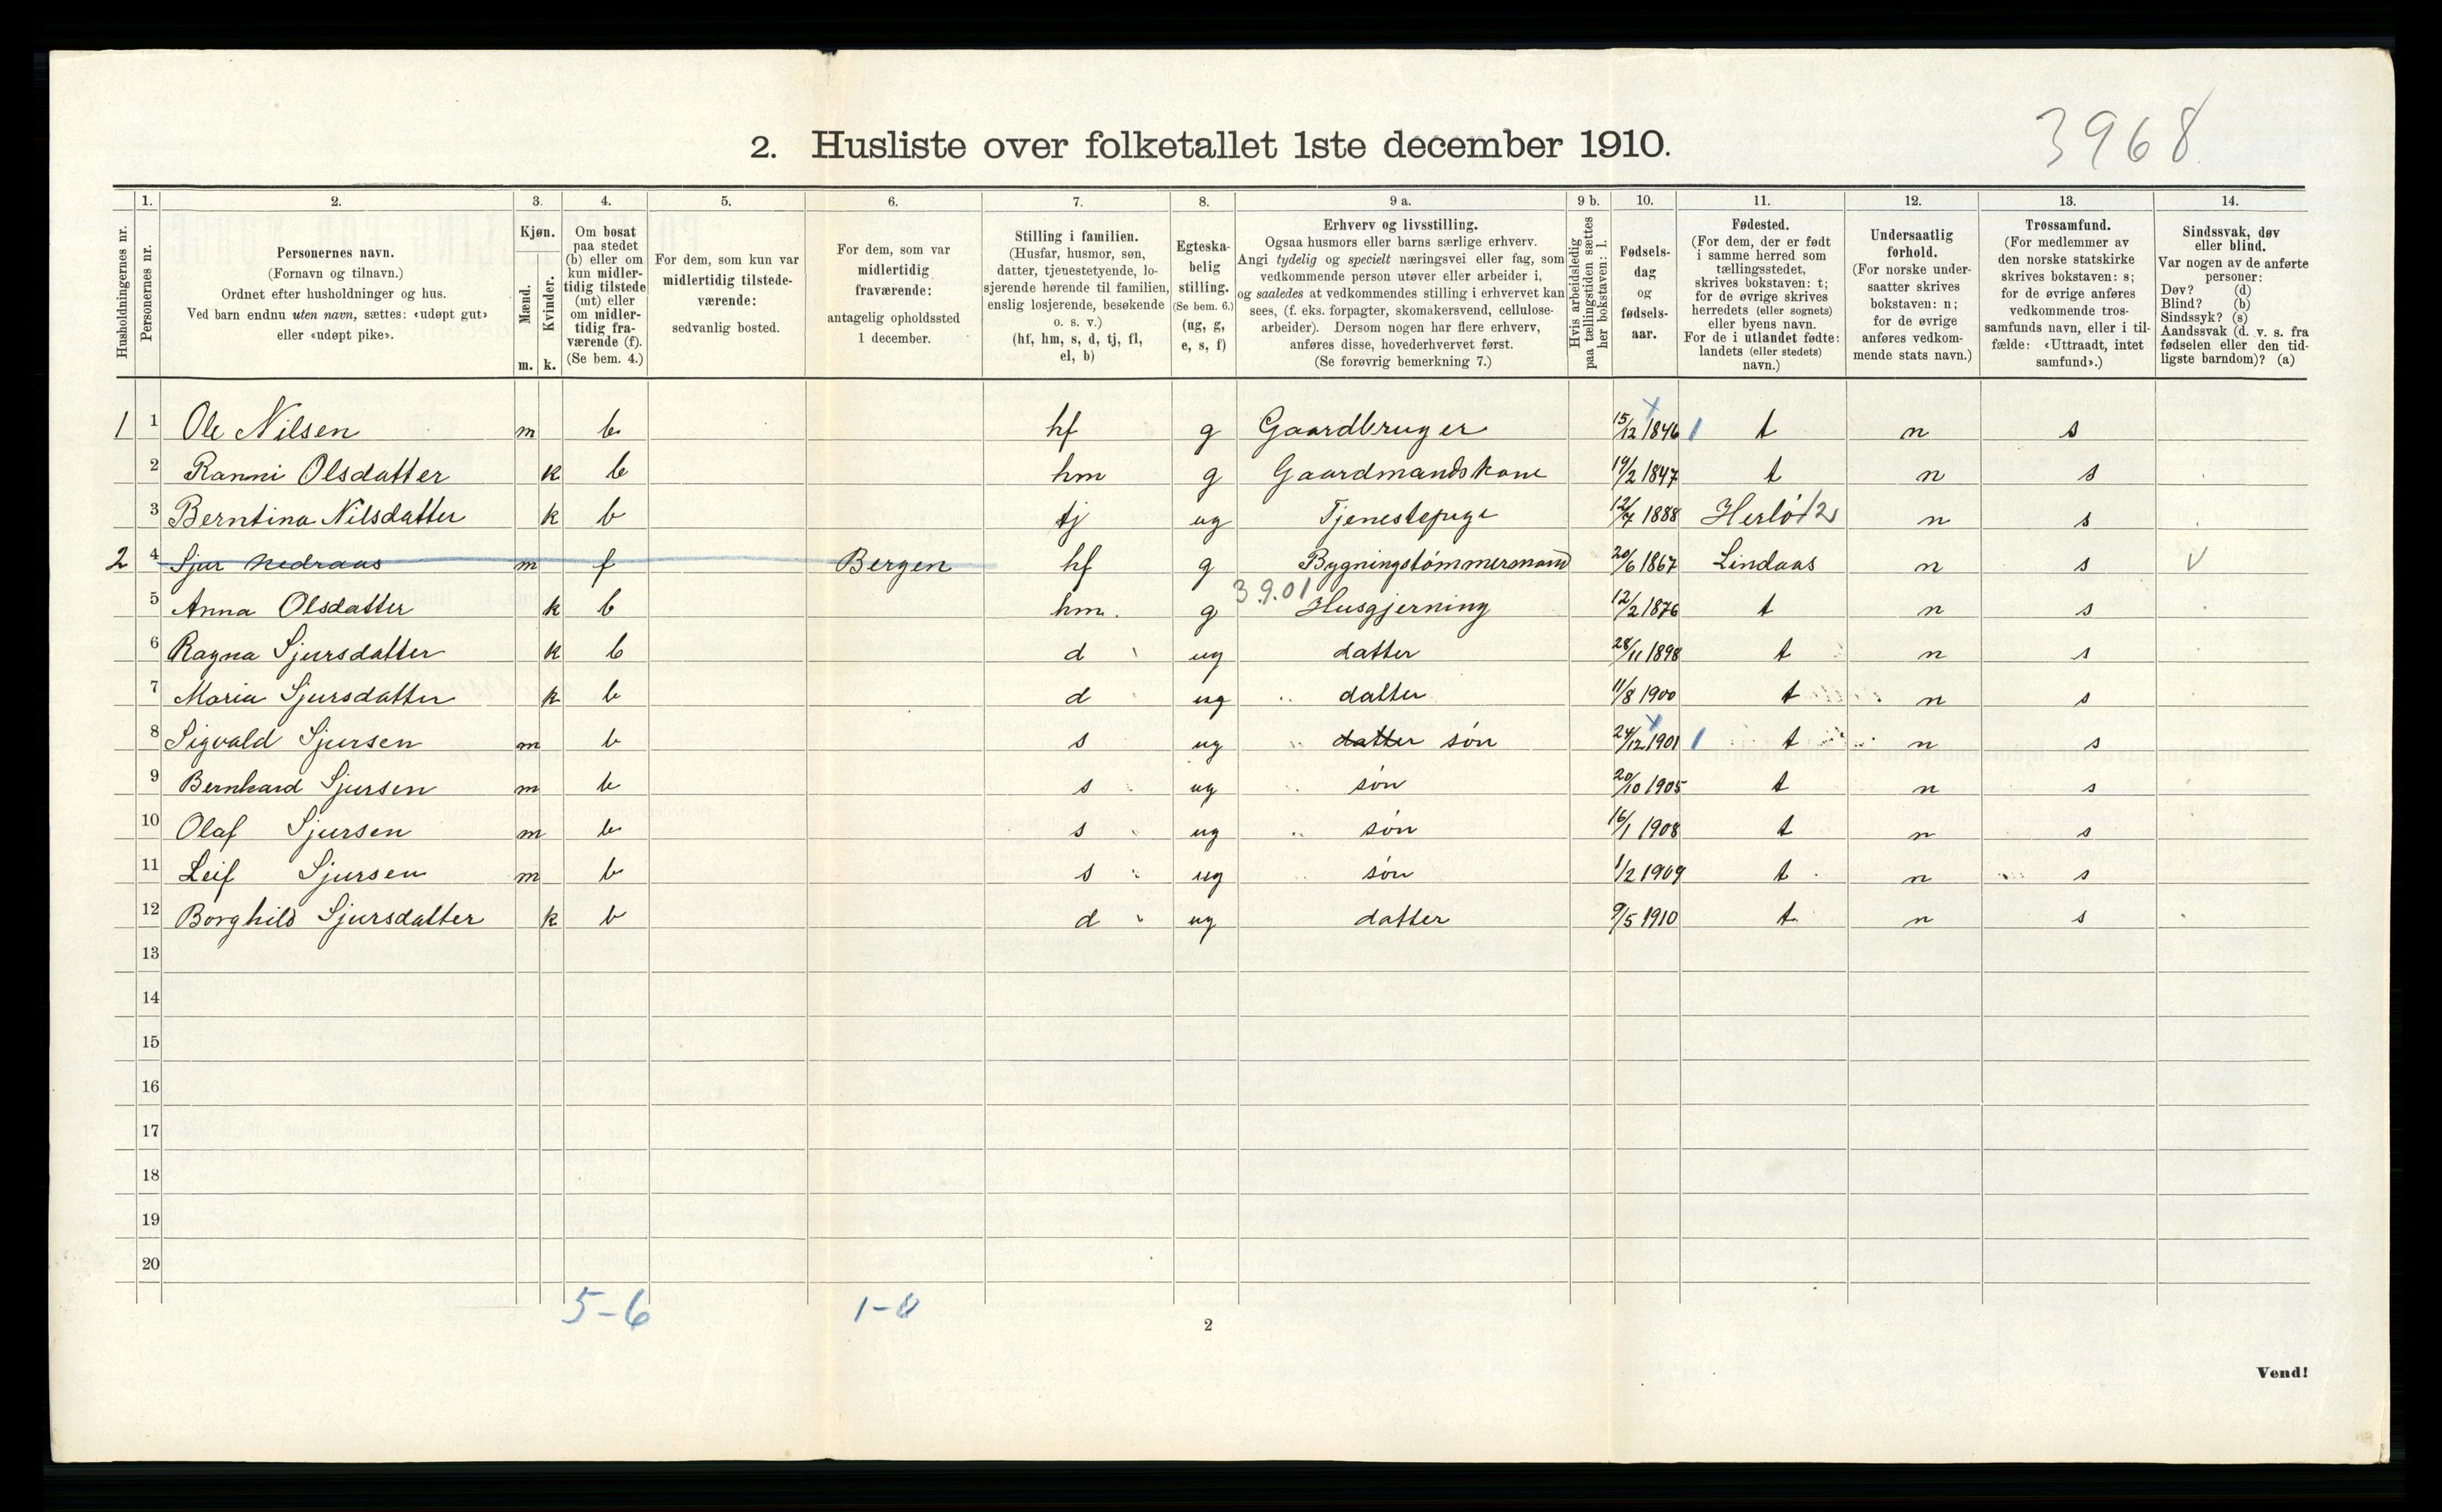 3968
2. Husliste over folketallet 1ste december 1910.
1. 2. 3. 4. 5. 6. 7. 8. 9 a. 9 b. 10. 11. 12. 13. 14.
Husholdningernes nr.
Personernes nr.
Personernes navn.
(Fornavn og tilnavn.)
Ordnet efter husholdninger og hus.
Ved barn endnu uten navn, sættes: «udøpt gut»
eller «udøpt pike».
Kjøn.
Mænd.
Kvinder.
m. k.
Om bosat
paa stedet
(b) eller om
kun midler-
tidig tilstede
(mt) eller
om midler-
tidig fra-
værende (f).
(Se bem. 4.)
For dem, som kun var
midlertidig tilstede-
værende:
sedvanlig bosted.
For dem, som var
midlertidig
fraværende:
antagelig opholdssted
1 december.
Stilling i familien.
(Husfar, husmor, søn,
datter, tjenestetyende, lo-
sjerende hørende til familien,
enslig losjerende, besøkende
o. s. v.)
(hf, hm, s, d, tj, fl,
el, b)
Egteska-
belig
stilling.
(Se bem. 6.)
(ug, g,
e, s, f)
Erhverv og livsstilling.
Ogsaa husmors eller barns særlige erhverv.
Angi tydelig og specielt næringsvei eller fag, som
vedkommende person utøver eller arbeider i,
og saaledes at vedkommendes stilling i erhvervet kan
sees, (f. eks. forpagter, skomakersvend, cellulose-
arbeider). Dersom nogen har flere erhverv,
anføres disse, hovederhvervet først.
(Se forøvrig bemerkning 7.)
Hvis arbeidsledig
paa tællingstiden sættes
her bokstaven: l.
Fødsels-
dag
og
fødsels-
aar.
Fødested.
(For dem, der er født
i samme herred som
tællingsstedet,
skrives bokstaven: t;
for de øvrige skrives
herredets (eller sognets)
eller byens navn.
For de i utlandet fødte:
landets (eller stedets)
navn.)
Undersaatlig
forhold.
(For norske under-
saatter skrives
bokstaven: n;
for de øvrige
anføres vedkom-
mende stats navn.)
Trossamfund.
(For medlemmer av
den norske statskirke
skrives bokstaven: s;
for de øvrige anføres
vedkommende tros-
samfunds navn, eller i til-
fælde: «Uttraadt, intet
samfund».)
Sindssvak, døv
eller blind.
Var nogen av de anførte
personer:
Døv? (d)
Blind? (b)
Sindssyk? (s)
Aandssvak (d. v. s. fra
fødselen eller den tid-
ligste barndom)? (a)
1 1 Ole Nilsen m b hf g Gaardbruger 15/12 1846 1 t n s
2 Ranni Olsdatter k b hm g Gaardmandskone 19/2 1847 t n s
3 Berntina Nilsdatter k b tj ug Tjenestepige 12/7 1888 Herlö 12 n s
2 4 Sjur Nedraas m f Bergen hf g Bygningstömmermand 20/6 1867 Lindaas n s V
3.9.01
5 Anna Olsdatter k b hm. g Husgjerning 12/2 1876 t n s
6 Ragna Sjursdatter k b d ug datter 28/11 1898 t n s
7 Maria Sjursdatter k b d ug datter 11/8 1900 t n s
8 Sigvald Sjursen m b s ug datter sön 24/12 1901 1 t n s
9 Bernhard Sjursen m b s ug sön 20/10 1905 t n s
10 Olaf Sjursen m b s ug sön 16/1 1908 t n s
11 Leif Sjursen m b s ug sön 1/2 1909 t n s
12 Borghild Sjursdatter k b d ug datter 9/5 1910 t n s
13
14
15
16
17
18
19
20
5-6 1-0
2
Vend!